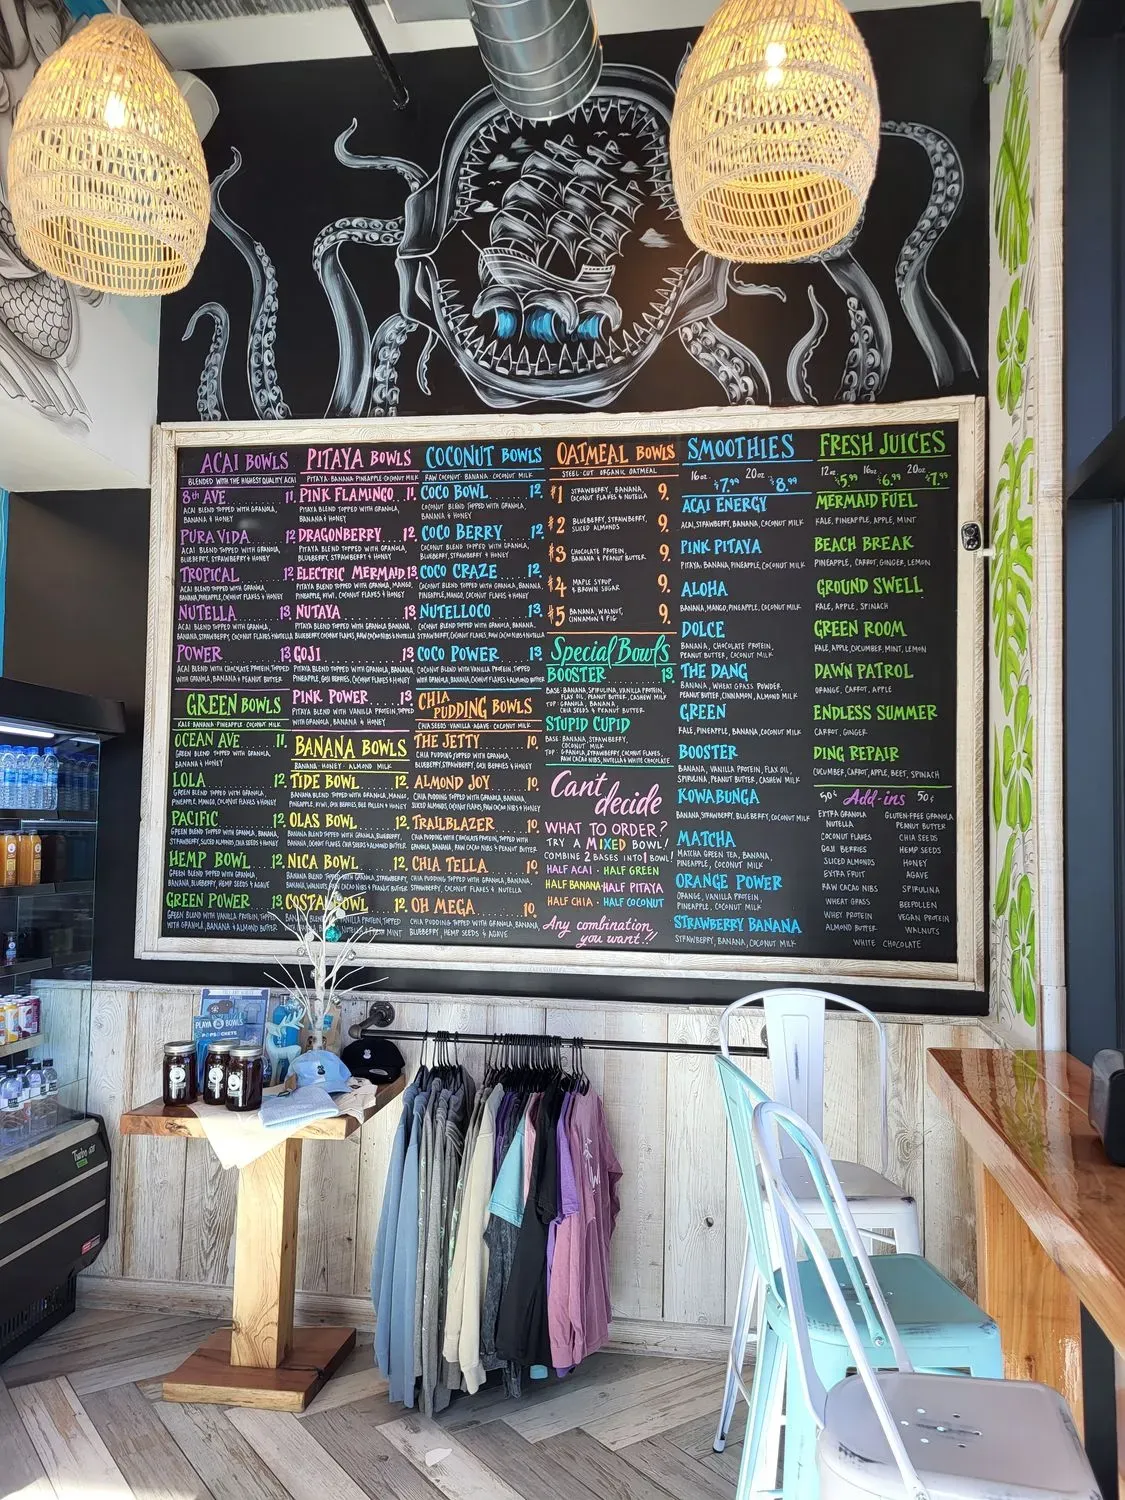 ACAI BOWLS
BLENDED WITH THE HIGHEST QUALITY ACAI
8th AVE 11.
ACAI BLEND TOPPED WITH GRANOLA,
BANANA & HONEY
PURA VIDA 12
ACAI BLEND TOPPED WITH GRANOLA,
BLUEBERRY, STRAWBERRY & HONEY
TROPICAL 12
ACAI BLEND TOPPED WITH GRANOLA,
BANANA, PINEAPPLE, COCONUT FLAKES & HONEY
NUTELLA 13
ACAI BLEND TOPPED WITH GRANOLA,
BANANA, STRAWBERRY, COCONUT FLAKES & NUTELLA
POWER 13
ACAI BLEND WITH CHOCOLATE PROTEIN, TOPPED
WITH GRANOLA, BANANA & PEANUT BUTTER
GREEN BOWLS
KALE·BANANA·PINEAPPLE·COCONUT MILK
OCEAN AVE 11.
GREEN BLEND TOPPED WITH GRANOLA,
BANANA & HONEY
LOLA 12.
GREEN BLEND TOPPED WITH GRANOLA,
PINEAPPLE, MANGO, COCONUT FLAKES & HONEY
PACIFIC 12.
GREEN BLEND TOPPED WITH GRANOLA, BANANA,
STRAWBERRY, SLICED ALMONDS, CHIA SEEDS & HONEY
HEMP BOWL 12.
GREEN BLEND TOPPED WITH GRANOLA,
BANANA, BLUEBERRY, HEMP SEEDS & AGAVE
GREEN POWER 13
GREEN BLEND WITH VANILLA PROTEIN, TOPPED
WITH GRANOLA, BANANA & ALMOND BUTTER
PITAYA BOWLS
PITAYA·BANANA·PINEAPPLE·COCONUT MILK
PINK FLAMINGO 11.
PITAYA BLEND TOPPED WITH GRANOLA,
BANANA & HONEY
DRAGONBERRY 12.
PITAYA BLEND TOPPED WITH GRANOLA,
BLUEBERRY, STRAWBERRY & HONEY
ELECTRIC MERMAID 13
PITAYA BLEND TOPPED WITH GRANOLA, MANGO,
PINEAPPLE, KIWI, COCONUT FLAKES & HONEY
NUTAYA 13.
PITAYA BLEND TOPPED WITH GRANOLA, BANANA,
BLUEBERRY, COCONUT FLAKES, RAW CACAO NIBS & NUTELLA
GOJI 13
PITAYA BLEND TOPPED WITH GRANOLA, BANANA,
PINEAPPLE, GOJI BERRIES, COCONUT FLAKES & HONEY
PINK POWER 13
PITAYA BLEND WITH VANILLA PROTEIN, TOPPED
WITH GRANOLA, BANANA & HONEY
BANANA BOWLS
BANANA·HONEY·ALMOND MILK
TIDE BOWL 12.
BANANA BLEND TOPPED WITH GRANOLA, MANGO,
PINEAPPLE, KIWI, GOJI BERRIES, BEE POLLEN & HONEY
OLAS BOWL 12.
BANANA BLEND TOPPED WITH GRANOLA, BLUEBERRY,
BANANA, COCONUT FLAKES, CHIA SEEDS & ALMOND BUTTER
NICA BOWL 12.
BANANA BLEND TOPPED WITH GRANOLA, STRAWBERRY,
BANANA, WALNUTS, RAW CACAO NIBS & PEANUT BUTTER
COSTA BOWL 12.
COCONUT BOWLS
RAW COCONUT·BANANA·COCONUT MILK
COCO BOWL 12.
COCONUT BLEND TOPPED WITH GRANOLA,
BANANA & HONEY
COCO BERRY 12.
COCONUT BLEND TOPPED WITH GRANOLA,
BLUEBERRY, STRAWBERRY & HONEY
COCO CRAZE 12.
COCONUT BLEND TOPPED WITH GRANOLA, BANANA,
PINEAPPLE, MANGO, COCONUT FLAKES & HONEY
NUTELLOCO 13.
COCONUT BLEND TOPPED WITH GRANOLA, BANANA,
STRAWBERRY, COCONUT FLAKES, RAW CACAO NIBS & NUTELLA
COCO POWER 13.
COCONUT BLEND WITH VANILLA PROTEIN, TOPPED
WITH GRANOLA, BANANA, COCONUT FLAKES & ALMOND BUTTER
CHIA PUDDING BOWLS
CHIA SEEDS·VANILLA·AGAVE·COCONUT MILK
THE JETTY 10.
CHIA PUDDING TOPPED WITH GRANOLA, BANANA,
STRAWBERRY, GOJI BERRIES & HONEY
ALMOND JOY 10.
CHIA PUDDING TOPPED WITH GRANOLA, BANANA,
SLICED ALMONDS, COCONUT FLAKES, RAW CACAO NIBS & HONEY
TRAILBLAZER 10.
CHIA PUDDING WITH CHOCOLATE PROTEIN, TOPPED WITH
GRANOLA, BANANA, RAW CACAO NIBS & PEANUT BUTTER
CHIA TELLA 10.
CHIA PUDDING TOPPED WITH GRANOLA, BANANA,
STRAWBERRY, COCONUT FLAKES & NUTELLA
OH MEGA 10.
CHIA PUDDING TOPPED WITH GRANOLA, BANANA,
BLUEBERRY, HEMP SEEDS & AGAVE
OATMEAL BOWLS
STEEL-CUT ORGANIC OATMEAL
#1 STRAWBERRY, BANANA, 9.
COCONUT FLAKES & NUTELLA
#2 BLUEBERRY, STRAWBERRY, 9.
SLICED ALMONDS
#3 CHOCOLATE PROTEIN, 9.
BANANA & PEANUT BUTTER
#4 MAPLE SYRUP 9.
& BROWN SUGAR
#5 BANANA, WALNUT, 9.
CINNAMON & FIG
Special Bowls
BOOSTER 13.
BASE: BANANA, SPIRULINA, VANILLA PROTEIN,
FLAX OIL, PEANUT BUTTER, CASHEW MILK
TOP: GRANOLA, BANANA,
CHIA SEEDS & PEANUT BUTTER
STUPID CUPID
BASE: BANANA, STRAWBERRY,
COCONUT MILK
TOP: GRANOLA, STRAWBERRY, COCONUT FLAKES,
RAW CACAO NIBS, NUTELLA & WHITE CHOCOLATE
Can't
decide
WHAT TO ORDER?
TRY A MIXED BOWL!
COMBINE 2 BASES INTO 1 BOWL!
HALF ACAI · HALF GREEN
HALF BANANA·HALF PITAYA
HALF CHIA · HALF COCONUT
Any combination
you want!!!
SMOOTHIES
16oz. $7.99 20oz. $8.99
ACAI ENERGY
ACAI, STRAWBERRY, BANANA, COCONUT MILK
PINK PITAYA
PITAYA, BANANA, PINEAPPLE, COCONUT MILK
ALOHA
BANANA, MANGO, PINEAPPLE, COCONUT MILK
DOLCE
BANANA, CHOCOLATE PROTEIN,
PEANUT BUTTER, COCONUT MILK
THE DANG
BANANA, WHEAT GRASS POWDER,
PEANUT BUTTER, CINNAMON, ALMOND MILK
GREEN
KALE, PINEAPPLE, BANANA, COCONUT MILK
BOOSTER
BANANA, VANILLA PROTEIN, FLAX OIL,
SPIRULINA, PEANUT BUTTER, CASHEW MILK
KOWABUNGA
BANANA, STRAWBERRY, BLUEBERRY, COCONUT MILK
MATCHA
MATCHA GREEN TEA, BANANA,
PINEAPPLE, COCONUT MILK
ORANGE POWER
ORANGE, VANILLA PROTEIN,
PINEAPPLE, COCONUT MILK
STRAWBERRY BANANA
STRAWBERRY, BANANA, COCONUT MILK
FRESH JUICES
12oz. $5.99 16oz. $6.99 20oz. $7.99
MERMAID FUEL
KALE, PINEAPPLE, APPLE, MINT
BEACH BREAK
PINEAPPLE, CARROT, GINGER, LEMON
GROUND SWELL
KALE, APPLE, SPINACH
GREEN ROOM
KALE, APPLE, CUCUMBER, MINT, LEMON
DAWN PATROL
ORANGE, CARROT, APPLE
ENDLESS SUMMER
CARROT, GINGER
DING REPAIR
CUCUMBER, CARROT, APPLE, BEET, SPINACH
50¢ Add-ins 50¢
EXTRA GRANOLA
NUTELLA
COCONUT FLAKES
GOJI BERRIES
SLICED ALMONDS
EXTRA FRUIT
RAW CACAO NIBS
WHEAT GRASS
WHEY PROTEIN
ALMOND BUTTER
GLUTEN-FREE GRANOLA
PEANUT BUTTER
CHIA SEEDS
HEMP SEEDS
HONEY
AGAVE
SPIRULINA
BEEPOLLEN
VEGAN PROTEIN
WALNUTS
WHITE CHOCOLATE
PLAYA BOWLS
POPSOCKETS
Turbo air